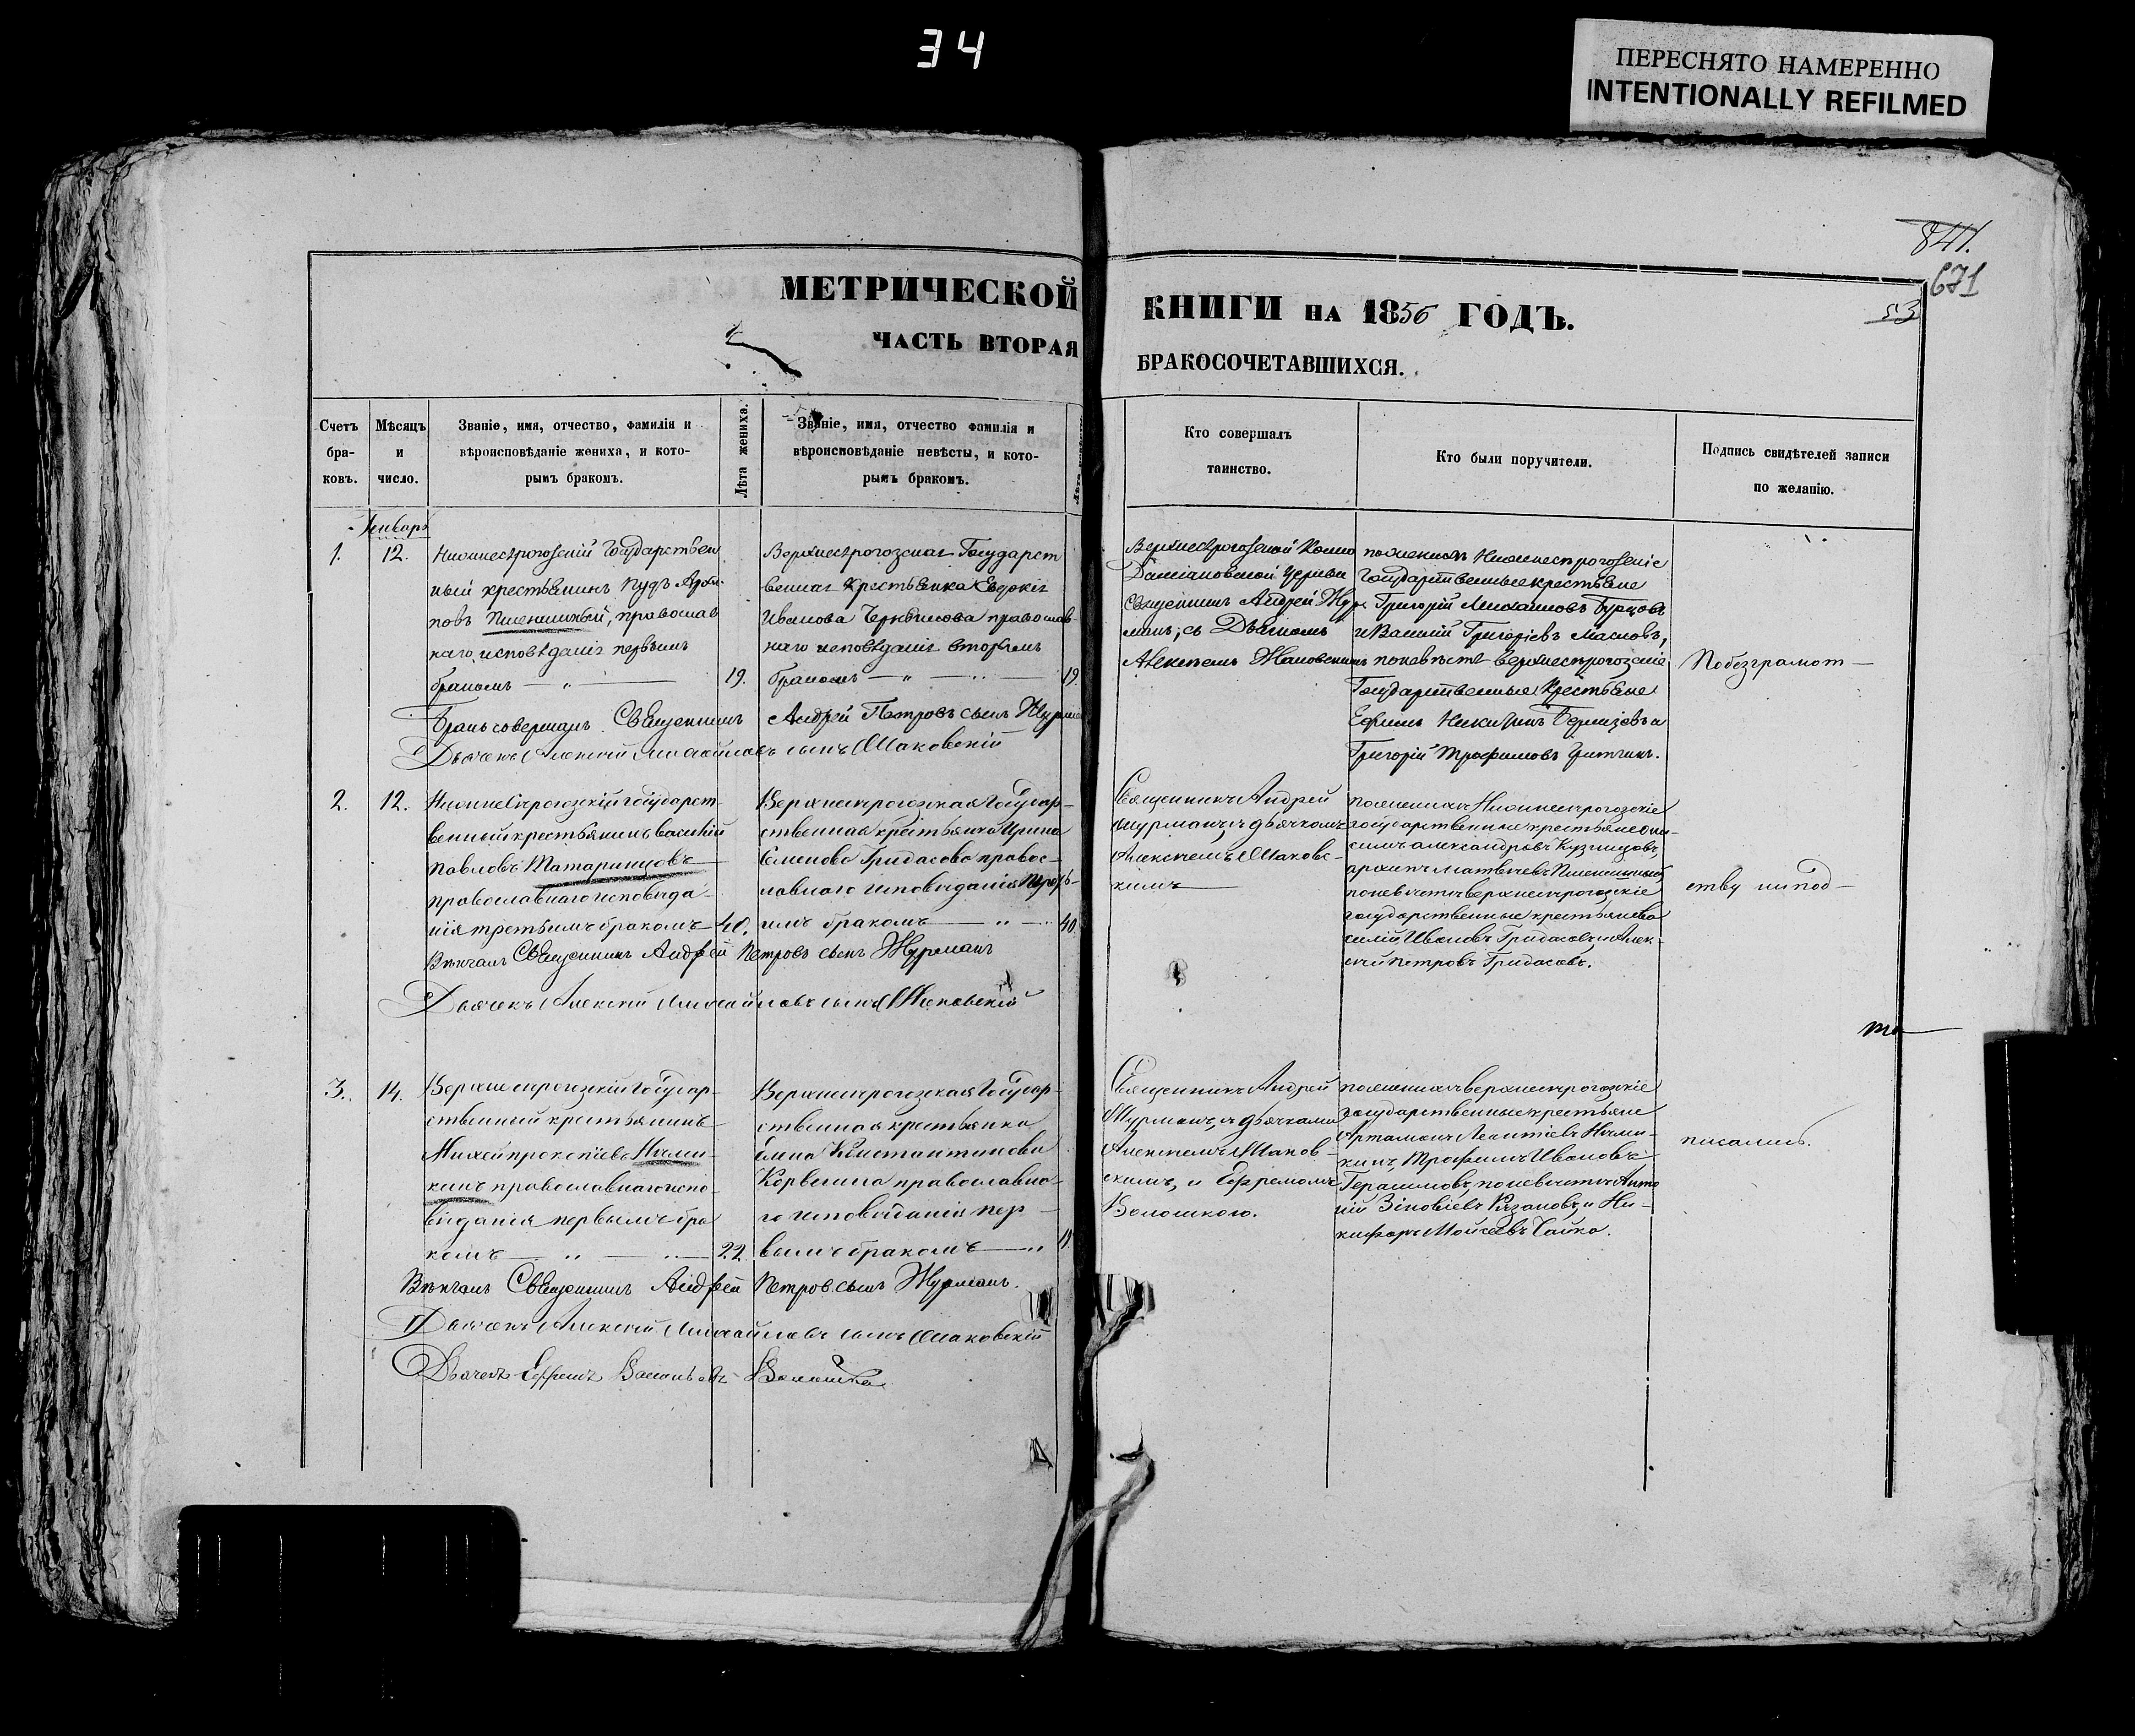 34
ПЕРЕСНЯТО НАМЕРЕННО
INTENTIONALLY REFILMED
841.
671
53
МЕТРИЧЕСКОЙ КНИГИ НА 1856 ГОДЪ.
ЧАСТЬ ВТОРАЯ БРАКОСОЧЕТАВШИХСЯ.
Счетъ
бра-
ковъ.
Мѣсяцъ
и
число.
Званіе, имя, отчество, фамилія и
вѣроисповѣданіе жениха, и кото-
рымъ бракомъ.
Лѣта жениха.
Званіе, имя, отчество фамилія и
вѣроисповѣданіе невѣсты, и кото-
рымъ бракомъ.
Кто совершалъ
таинство.
Кто были поручители.
Подпись свидѣтелей записи
по желанію.
Январь
1.
12.
Нижнесѣрогозскій Государствен
ный крестьянинъ Пудъ
повъ Пшеничный, православ
наго исповѣданія первымъ
бракомъ — „ —
19.
Верхнесѣрогозская Государст
венная крестьянка Евдокія
Иванова православ-
наго исповѣданія вторымъ
бракомъ — „ —
19.
Верхнесѣрогозской Козмо
Даміановской церкви
Священникъ Андрей Жур
манъ, съ Дьячкомъ
Алексѣемъ
по женихѣ Нижнесѣрогозскіе
Государственные крестьяне
Григорій Михайловъ Бурцовъ
и Василій Григоріевъ Масловъ,
по невѣстѣ верхнесѣрогозскіе
Государственные крестьяне
Ефимъ Никитинъ
Григорій Трофимовъ
По безграмот —
Бракъ совершалъ Священникъ Андрей Петровъ сынъ Журманъ
Дьячекъ Алексій Михайловъ сынъ
2.
12.
Нижнесѣрогозскій государст-
венный крестьянинъ Василій
Павловъ Татаринцовъ
православнаго исповѣда-
нія третьимъ бракомъ
40.
Верхнесѣрогозская Государ-
ственная крестьянка Ирина
Семенова Гридасова правос-
лавнаго исповѣданія
имъ бракомъ — „ —
40.
Священникъ Андрей
Журманъ, съ дьячкомъ
Алексѣемъ
кимъ
по женихѣ Нижнесѣрогозскіе
государственные крестьяне Они-
симъ Александровъ Кузнецовъ,
Архипъ Матвѣевъ Пшеничный,
по невѣстѣ верхнесѣрогозскіе
государственные крестьяне Ва
силій Ивановъ Гридасовъ, и Алек-
сѣй Петровъ Гридасовъ.
ству не под —
Вѣнчалъ Священникъ Андрей Петровъ сынъ Журманъ
Дьячекъ Алексій Михайловъ сынъ
3.
14.
Верхнесѣрогозскій Государ-
ственный крестьянинъ
Михей Прокопіевъ
кинъ православнаго испо-
вѣданія первымъ бра
комъ — „ —
22
Верхнесѣрогозская Государ-
ственная крестьянка
Елена Константинова
православна-
го исповѣданія пер —
вымъ бракомъ — „
19
Священникъ Андрей
Журманъ, съ дьячками
Алексѣемъ
скимъ, и Ефремомъ
Волошкою.
по женихѣ верхнесѣрогозскіе
государственные крестьяне
Артамонъ Леонтіевъ
кинъ, Трофимъ Ивановъ
Герасимовъ, по невѣстѣ Анто
ній Зіновіевъ Рязановъ, и Ни-
кифоръ Мойсеевъ Чайка.
писались.
Вѣнчалъ Священникъ Андрей Петровъ сынъ Журманъ.
Дьячекъ Алексій Михайловъ сынъ
Дьячекъ Ефремъ Васильевъ Волошка